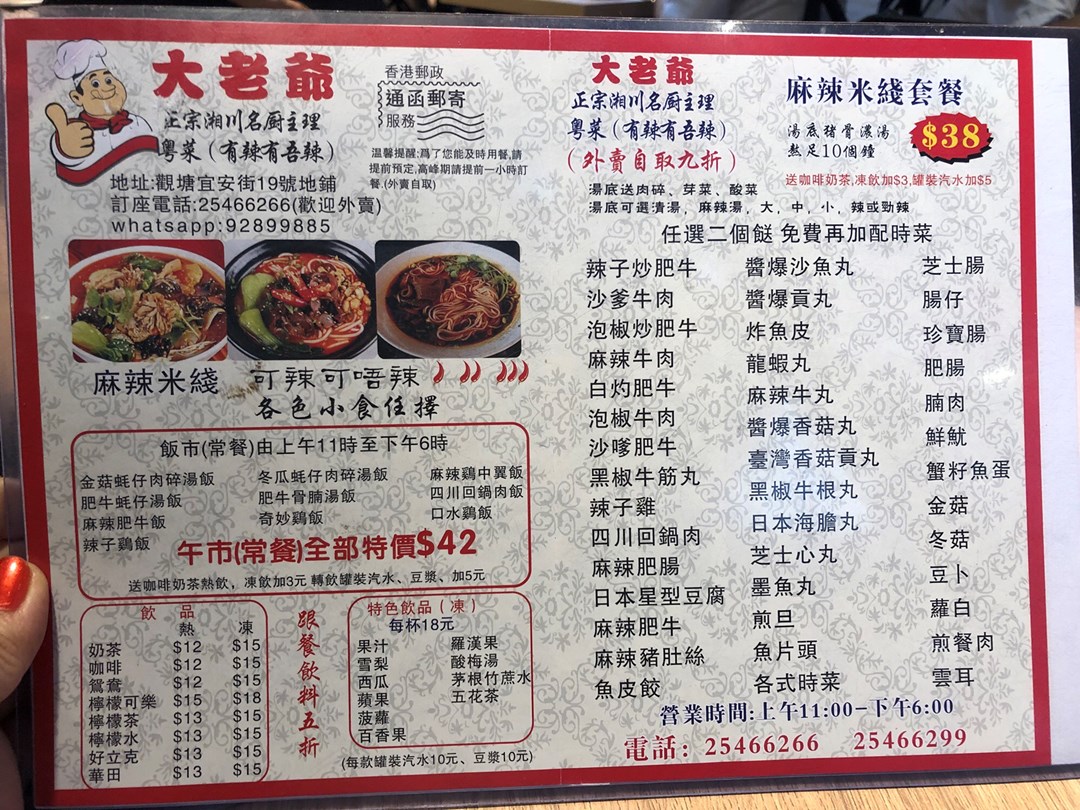 大老爺
正宗湘川名厨主理
粵菜（有辣有吾辣）
香港郵政
通函郵寄
服務
温馨提醒:爲了您能及時用餐,請
提前預定,高峰期請提前一小時訂
餐.(外賣自取)
地址:觀塘宜安街19號地鋪
訂座電話:25466266(歡迎外賣)
whatsapp:92899885
麻辣米綫 可辣可唔辣
各色小食任擇
飯市(常餐)由上午11時至下午6時
金菇蚝仔肉碎湯飯
肥牛蚝仔湯飯
麻辣肥牛飯
辣子鷄飯
冬瓜蚝仔肉碎湯飯
肥牛骨腩湯飯
奇妙鷄飯
麻辣鷄中翼飯
四川回鍋肉飯
口水鷄飯
午市(常餐)全部特價$42
送咖啡奶茶熱飲，凍飲加3元 轉飲罐裝汽水、豆漿、加5元
飲品
熱 凍
奶茶 $12 $15
咖啡 $12 $15
鴛鴦 $12 $15
檸檬可樂 $15 $18
檸檬茶 $13 $15
檸檬水 $13 $15
好立克 $13 $15
華田 $13 $15
跟餐飲料五折
特色飲品（凍）
每杯18元
果汁
雪梨
西瓜
蘋果
菠蘿
百香果
羅漢果
酸梅湯
茅根竹蔗水
五花茶
(每款罐裝汽水10元、豆漿10元)
大老爺
正宗湘川名厨主理
粵菜（有辣有吾辣）
（外賣自取九折）
麻辣米綫套餐
湯底猪骨濃湯
熬足10個鐘
$38
送咖啡奶茶,凍飲加$3,罐裝汽水加$5
湯底送肉碎、芽菜、酸菜
湯底可選清湯，麻辣湯，大，中，小，辣或勁辣
任選二個餸 免費再加配時菜
辣子炒肥牛
沙爹牛肉
泡椒炒肥牛
麻辣牛肉
白灼肥牛
泡椒牛肉
沙嗲肥牛
黑椒牛筋丸
辣子雞
四川回鍋肉
麻辣肥腸
日本星型豆腐
麻辣肥牛
麻辣豬肚絲
魚皮餃
醬爆沙魚丸
醬爆貢丸
炸魚皮
龍蝦丸
麻辣牛丸
醬爆香菇丸
臺灣香菇貢丸
黑椒牛根丸
日本海膽丸
芝士心丸
墨魚丸
煎旦
魚片頭
各式時菜
芝士腸
腸仔
珍寶腸
肥腸
腩肉
鮮魷
蟹籽魚蛋
金菇
冬菇
豆卜
蘿白
煎餐肉
雲耳
營業時間:上午11:00-下午6:00
電話: 25466266 25466299